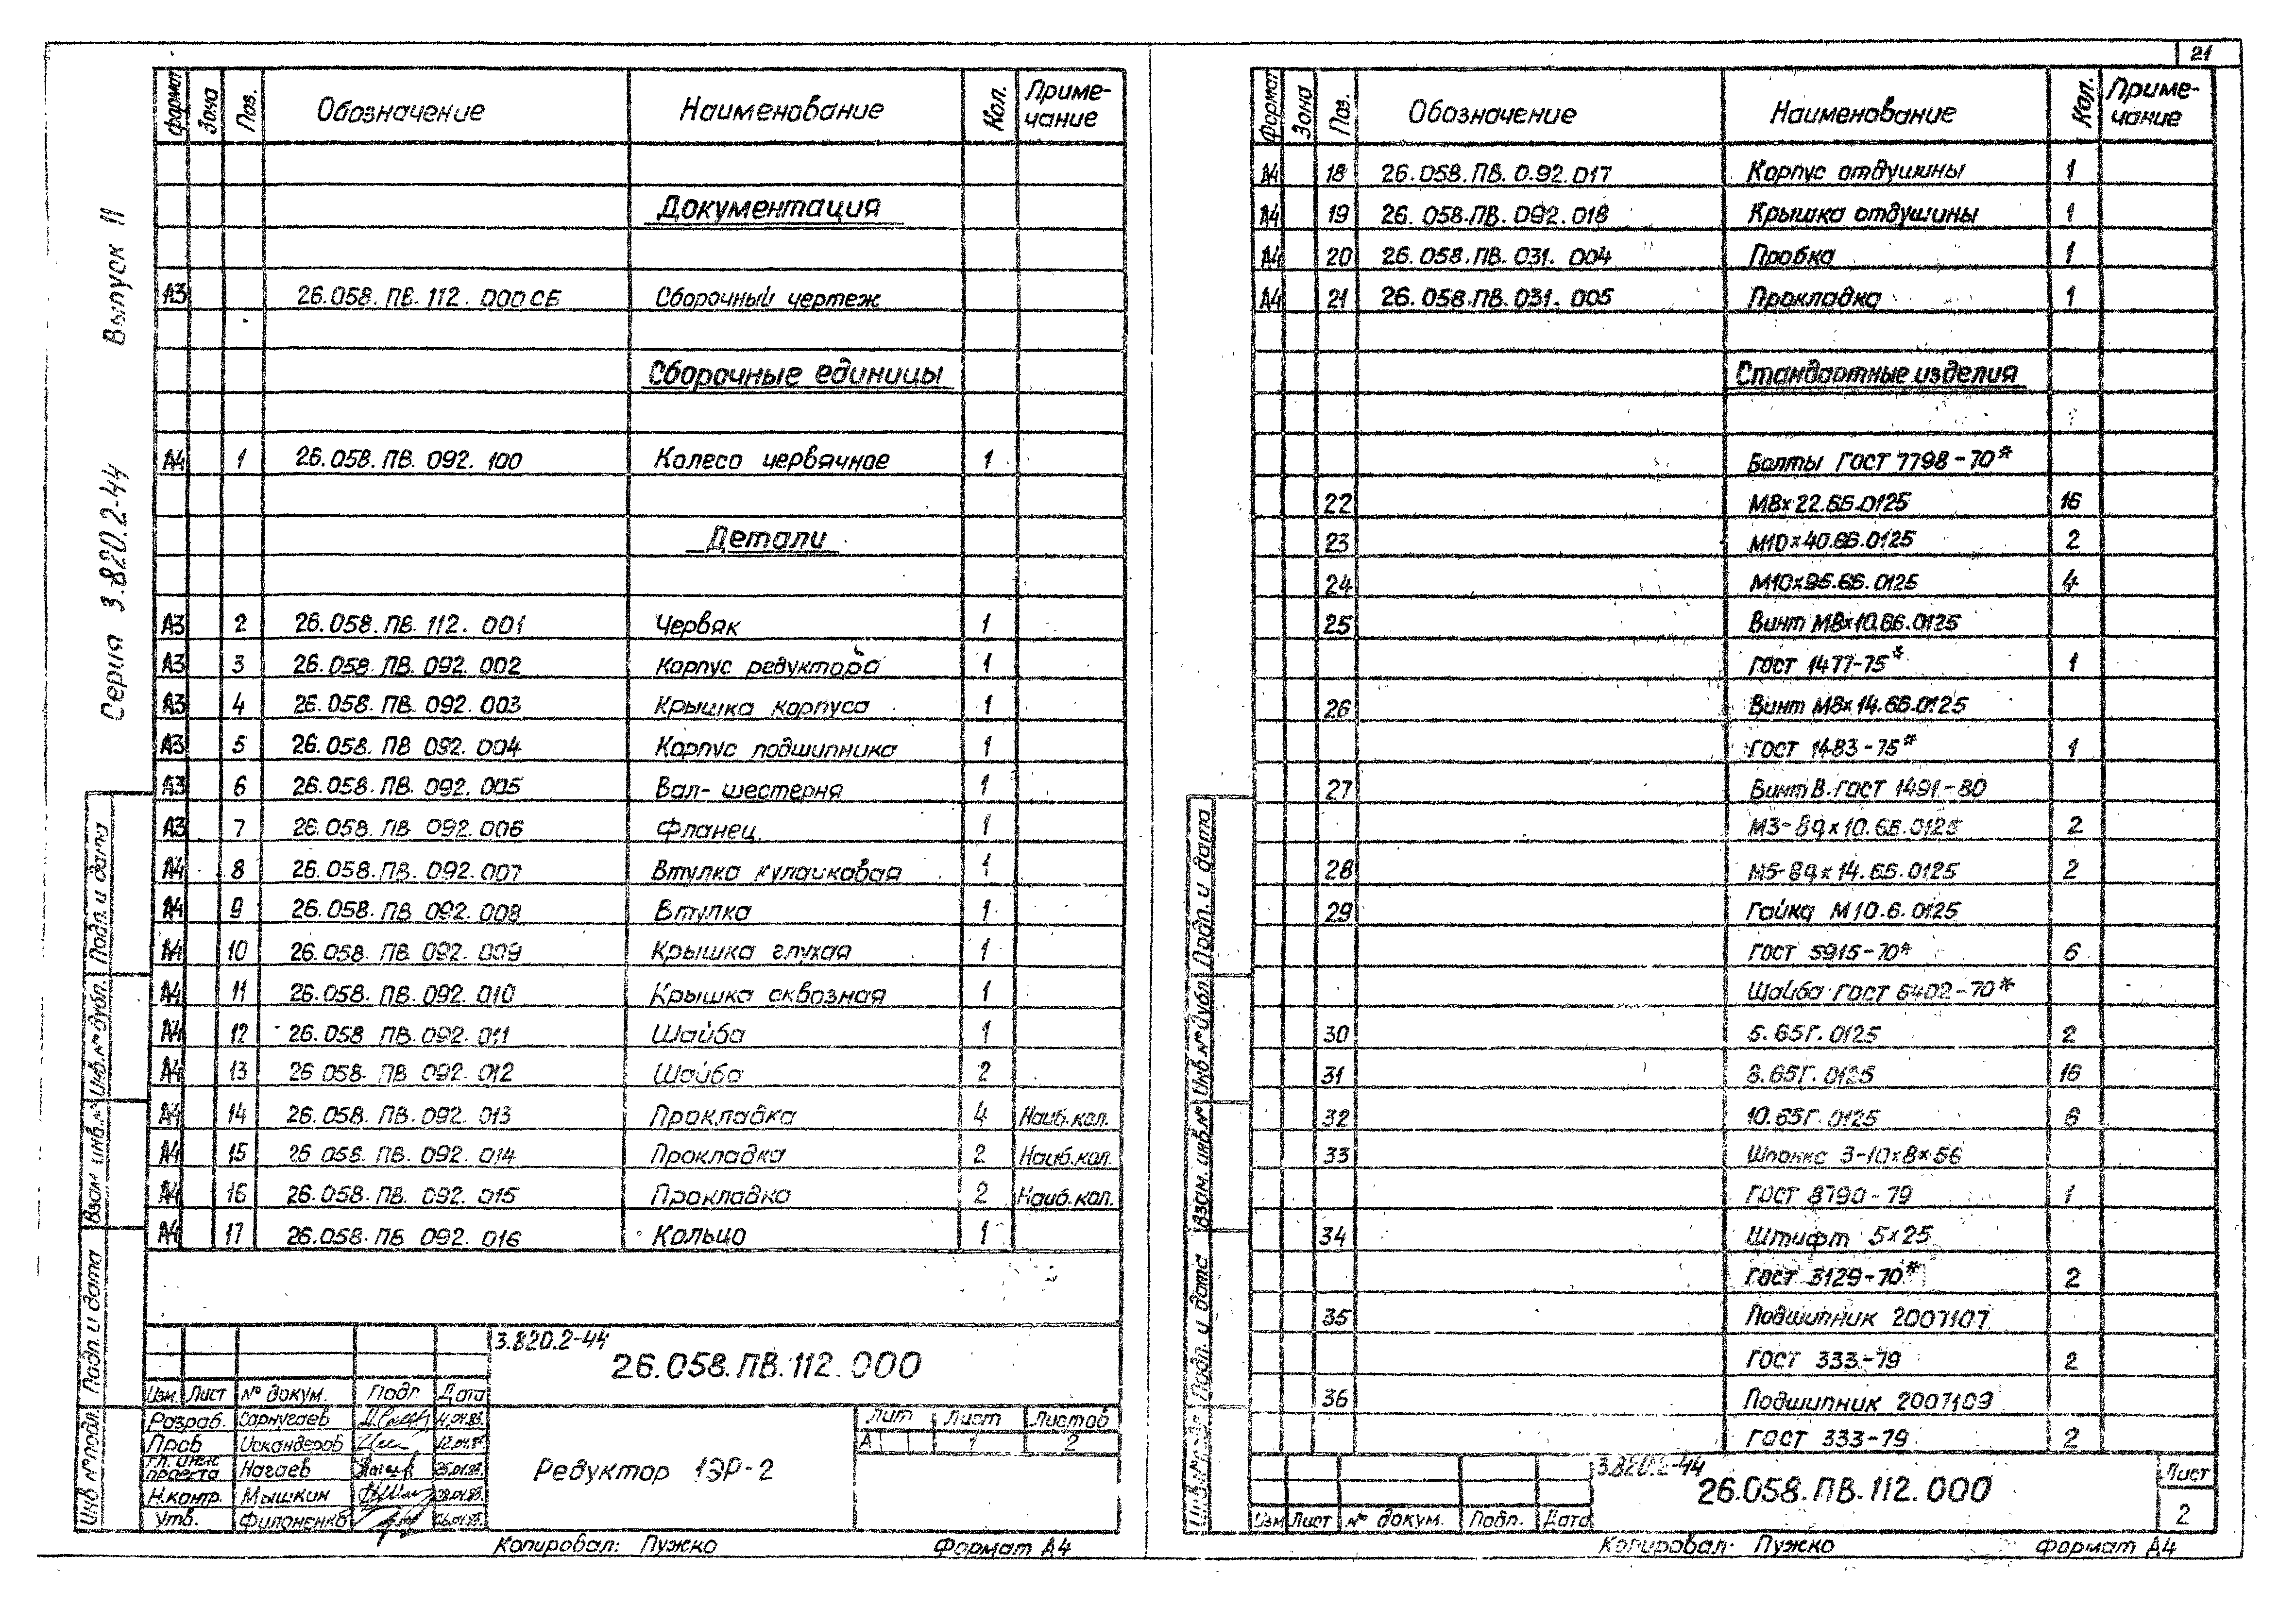 21
Серия 3.820.2-44 Выпуск II
Формат Зона Поз. Обозначение Наименование Кол. Приме-
чание
Документация
А3 26.058.ПВ.112.000СБ Сборочный чертеж
Сборочные единицы
А4 1 26.058.ПВ.092.100 Колесо червячное 1
Детали
А3 2 26.058.ПВ.112.001 Червяк 1
А3 3 26.058.ПВ.092.002 Корпус редуктора 1
А3 4 26.058.ПВ.092.003 Крышка корпуса 1
А3 5 26.058.ПВ 092.004 Корпус подшипника 1
А3 6 26.058.ПВ.092.005 Вал-шестерня 1
А3 7 26.058.ПВ 092.006 Фланец 1
А4 8 26.058.ПВ.092.007 Втулка кулачковая 1
А4 9 26.058.ПВ 092.008 Втулка 1
А4 10 26.058.ПВ.092.009 Крышка глухая 1
А4 11 26.058.ПВ.092.010 Крышка сквозная 1
А4 12 26.058 ПВ.092.011 Шайба 1
А4 13 26 058.ПВ 092.012 Шайба 2
А4 14 26.058.ПВ.092.013 Прокладка 4 Наиб.кол.
А4 15 26 058.ПВ.092.014 Прокладка 2 Наиб.кол.
А4 16 26.058.ПВ.092.015 Прокладка 2 Наиб.кол.
А4 17 26.058.ПВ 092.016 Кольцо 1
3.820.2-44
26.058.ПВ.112.000
Изм. Лист № докум. Подп. Дата
Разраб. Сарнугаев
Пров Искандеров
Гл. инж.
проекта Нагаев
Н.контр. Мышкин
Утв. Филоненко
Редуктор 1ЭР-2
Лит Лист Листов
А 1 2
Копировал: Пужко Формат А4
Инв № подл. Подп. и дата Взам инв.№ Инв.№ дубл. Подп. и дата
Формат Зона Поз. Обозначение Наименование Кол. Приме-
чание
А4 18 26.058.ПВ.0.92.017 Корпус отдушины 1
А4 19 26.058.ПВ.092.018 Крышка отдушины 1
А4 20 26.058.ПВ.031.004 Пробка 1
А4 21 26.058.ПВ.031.005 Прокладка 1
Стандартные изделия
Болты ГОСТ 7798-70*
22 М8х22.66.0125 16
23 М10х40.66.0125 2
24 М10х95.66.0125 4
25 Винт М8х10.66.0125
ГОСТ 1477-75* 1
26 Винт М8х14.66.0125
ГОСТ 1483-75* 1
27 Винт В.ГОСТ 1491-80
М3-8gх10.66.0125 2
28 М5-8gх14.66.0125 2
29 Гайка М10.6.0125
ГОСТ 5915-70* 6
Шайба ГОСТ 6402-70*
30 5.65Г.0125 2
31 8.65Г.0125 16
32 10.65Г.0125 6
33 Шпонка 3-10х8х56
ГОСТ 8790-79 1
34 Штифт 5х25
ГОСТ 3129-70* 2
35 Подшипник 2007107
ГОСТ 333-79 2
36 Подшипник 2007109
ГОСТ 333-79 2
3.820.2-44
26.058.ПВ.112.000
Лист
2
Изм Лист № докум. Подп. Дата
Копировал: Пужко Формат А4
Инв.№ подл. Подп. и дата Взам.инв.№ Инв.№ дубл. Подп. и дата